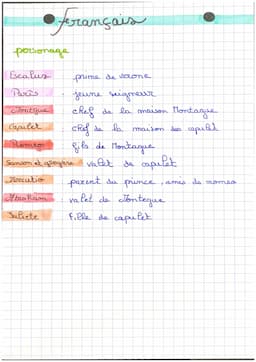 français
personage
Escalus : prince de verone
Paris : jeune seigneur
Montague : chef de la maison Montague
Capulet : chef de la maison des capulet
Romeo : fils de Montague
Samson et grégoire valet de capulet
Mercutio : parent du prince, amis de romeo
Abraham : valet de Montegue
Juliete : fille de capulet